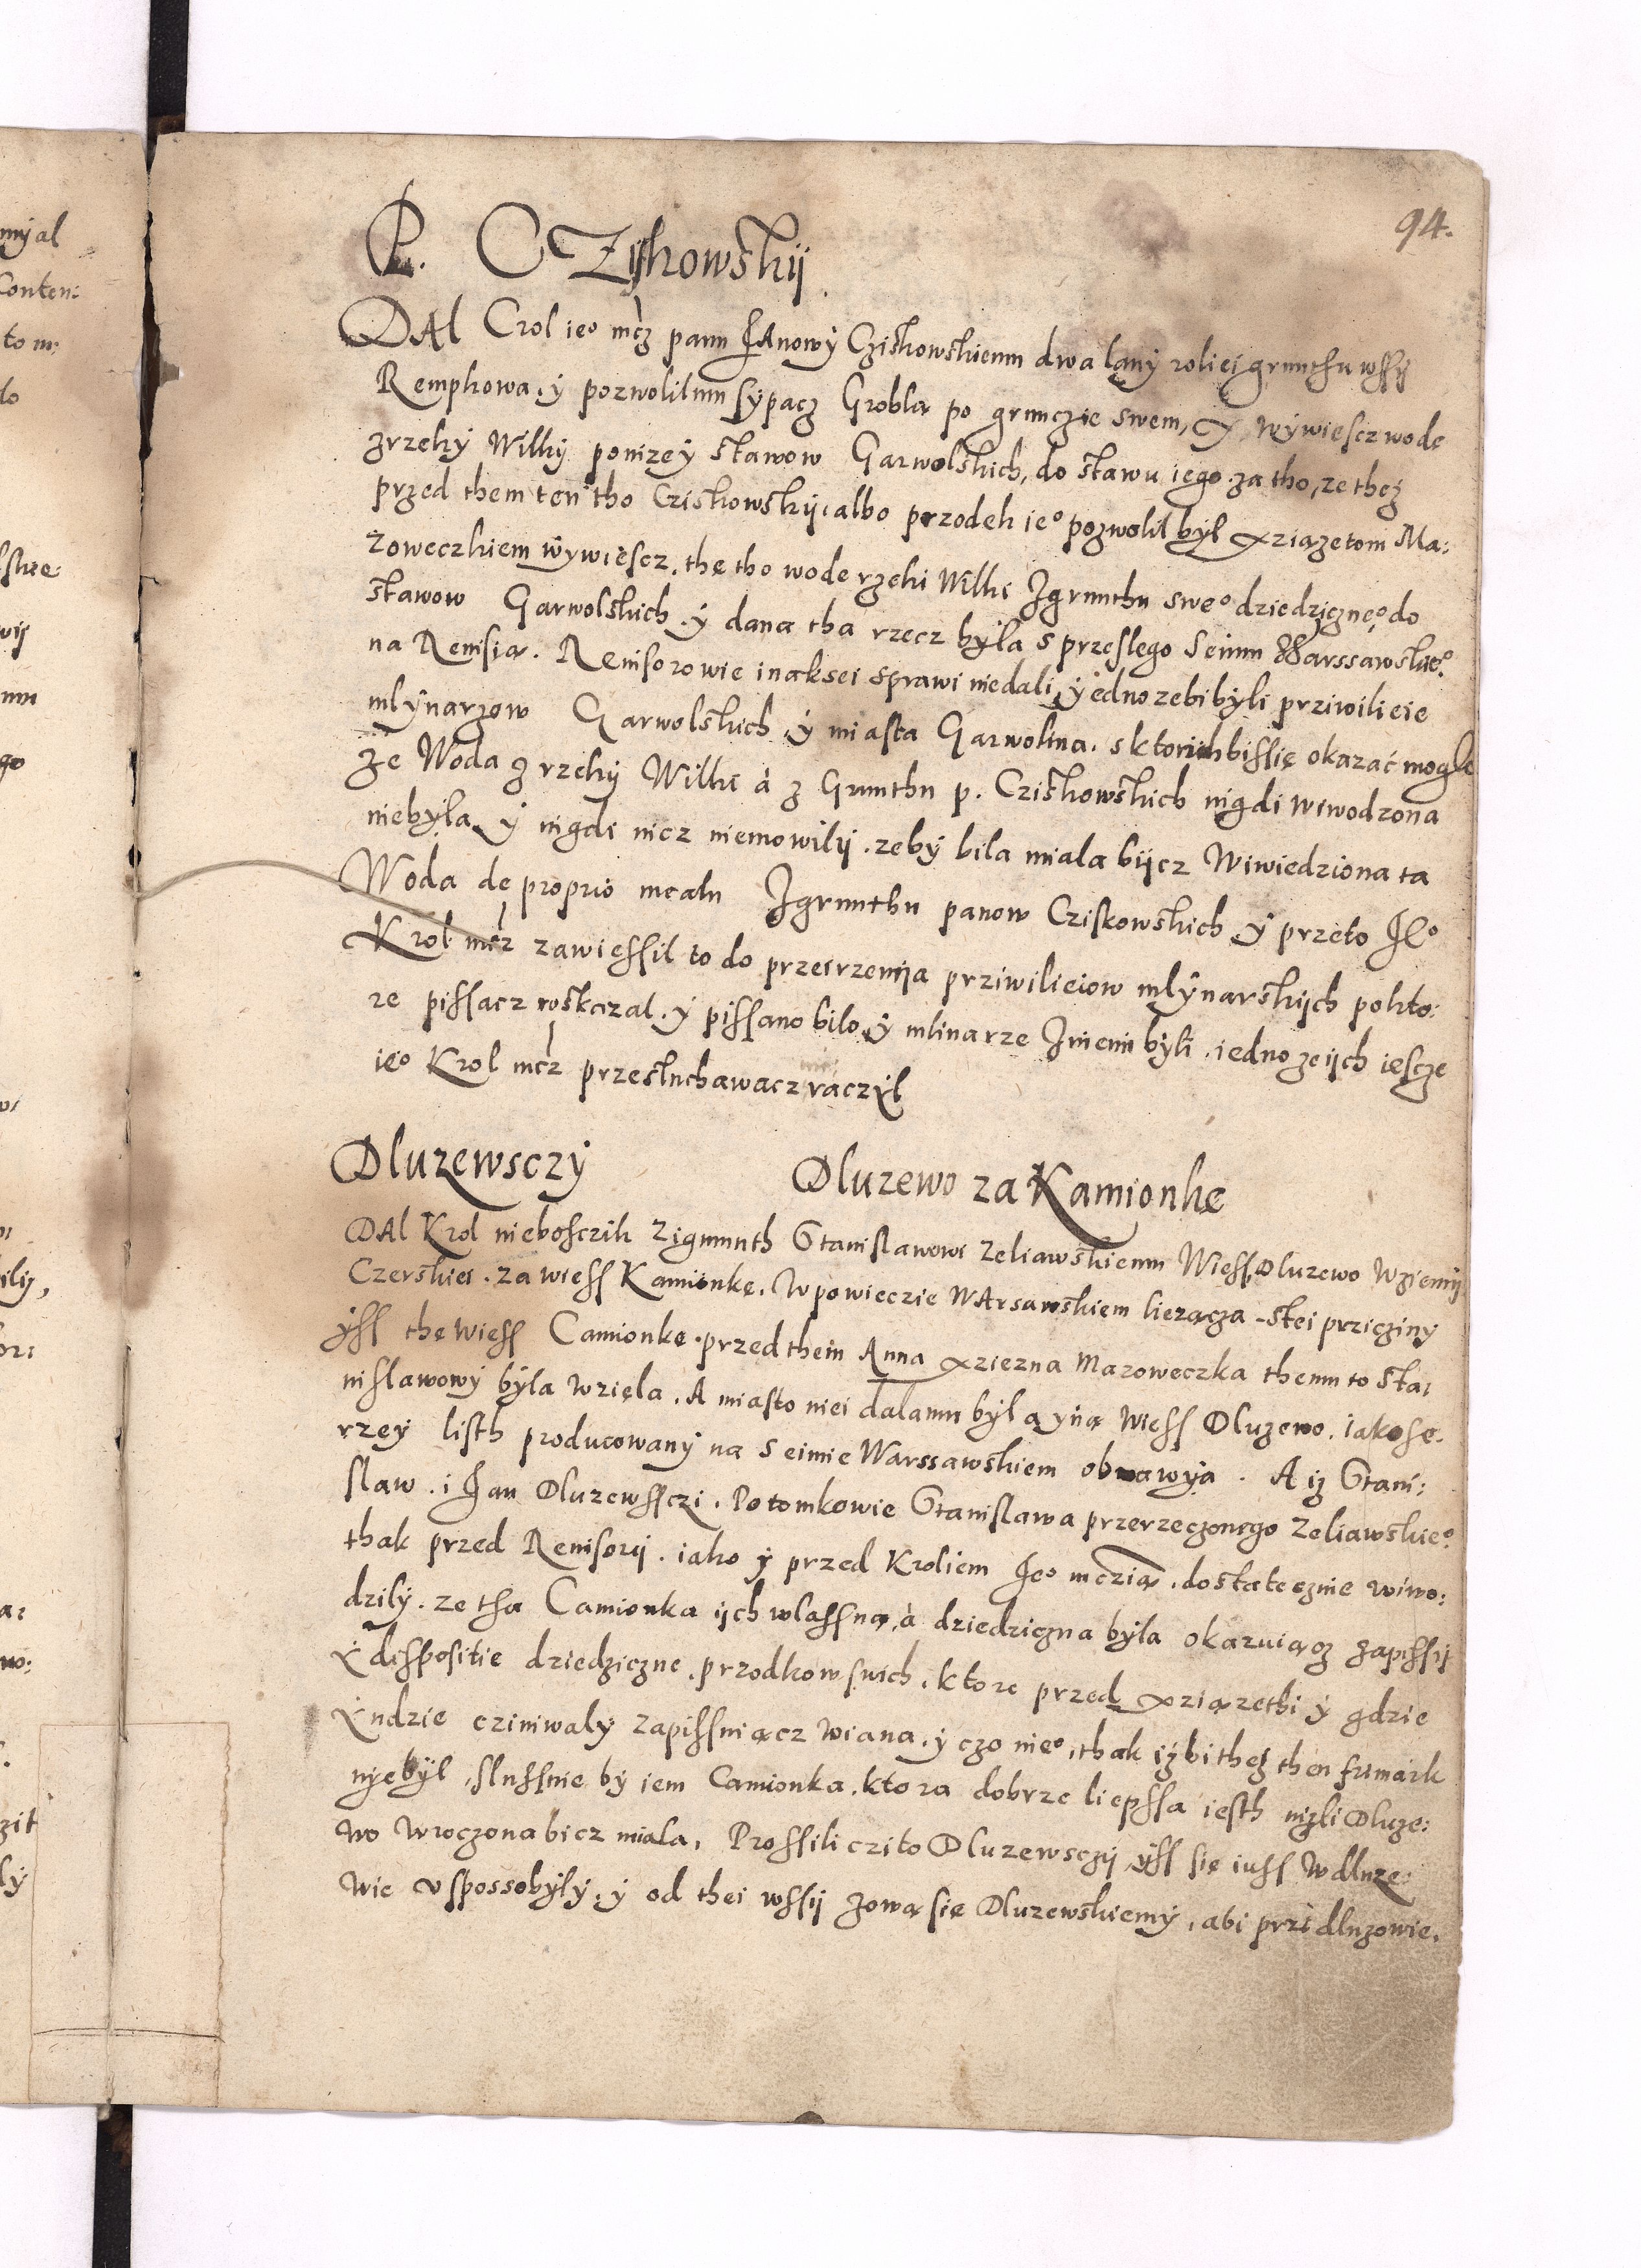 94.
P. CZyskowskij
DAl Crol ieº mcz panu IAnowÿ Cziskowskiemu dwa lany roliei grunthu wssÿ
Rempkowa. ÿ pozwolilmu sÿpacz Grobla po grunczie swem, ÿ wÿwiescz wode
zrzekÿ Wilkÿ ponizeÿ stawow Garwolskich, do stawu iego. za tho, ze thcz
przed them ten tho Cziskowskÿ. albo przodek ieº pozwolil bÿl xziązetom Ma:
zoweczkiem wÿwiescz. thę tho wode rzeki Wilki Zgrunthu sweº dziedzicznęº do
stawow Garwolskich. ÿ dana tha rzecz bÿla s przeslego Seimu Warssawskieº
na Remisią. Remisorowie inaksei sprawi niedali, ÿedno zebi bÿli prziwilieie
mlÿnarzow Garwolskich ÿ miasta Garwolina. sktorich bissię okazać mogło
Ze Woda z rzekÿ Wilki à z Grunthu p. Cziskowskich nigdi wiwodzona
niebÿla, ÿ nigdi nicz niemowilÿ. zebÿ bila miala bÿcz Wiwiedziona ta
Woda de proprio meatu Zgrunthu panow Cziskowskich ÿ przeto Ieº
Krol mcz zawiessil to do przeirzenija prziwilieiow mlÿnarskÿch pokto:
re pissacz roskazal. ÿ pissano bilo, ÿ mlinarze Imieni bÿli. iedno zeÿch iescze
ieº Krol mcz przesluchawacz raczÿl
Dluzewsczÿ Dluzewo za Kamionkę
DAl Krol nieboszczik Zigmunth Stanislawowi Zeliawskiemu Wiess Dluzewo Wziemÿ
Czerskiei. za wiess Kamionkę. Wpowieczie WArsawskiem liezącza - stei przicziny
ÿss thę wiess Camionke. przed them Anna xziezna Mazoweczka themu to sta:
nislawowÿ bÿla wziela. A miasto niei dalamu bÿla ÿną wiess Dluzewo. iako sze:
rzeÿ listh producowanÿ na Seimie Warssawskiem obmawÿa. A iz Stani:
slaw. i Ian Dluzewssczi. Potomkowie Stanislawa przerzeczonego Zeliawskieº
thak przed Remisorÿ. iako ÿ przed Kroliem Ieº mczią. dostatecznie wiwo:
dzilÿ. ze tha Camionka ÿch wlassna, à dziedziczna bÿla okazuiącz zapissÿ
ÿ disspositie dziedziczne. przodkow swich. ktore przed xziązetki ÿ gdzie
Indzie cziniwalÿ zapissuiącz wiana. ÿ czo nieº, thak iżbi theż then frimark
niebÿl, slussnie bÿ iem Camionka. ktora dobrze liepssa iesth niżli Dluze:
wo Wroczona bicz miala. Prossili czi to Dluzewsczÿ ÿss się iuss Wdluze:
wie vspossobÿlÿ, ÿ od thei wssÿ zową się Dluzewskiemÿ, abi przi dluzowie.